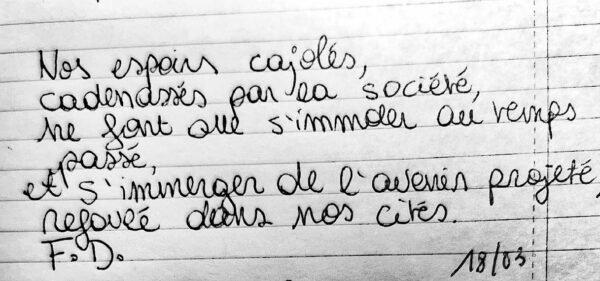 Nos espoirs cajolés,
cadenassés par la société,
ne font que s'immoler au temps
passé,
et s'immerger de l'avenir projeté,
refoulé dans nos cités.
F.D.
18/03